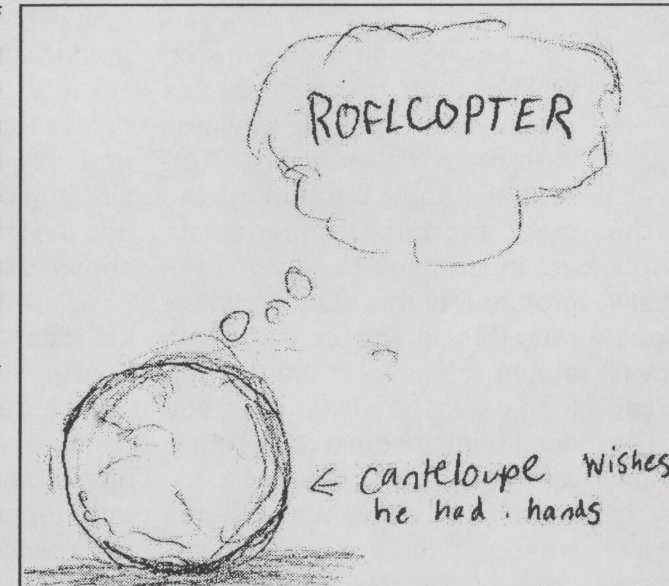 ROFLCOPTER
← canteloupe wishes
he had. hands